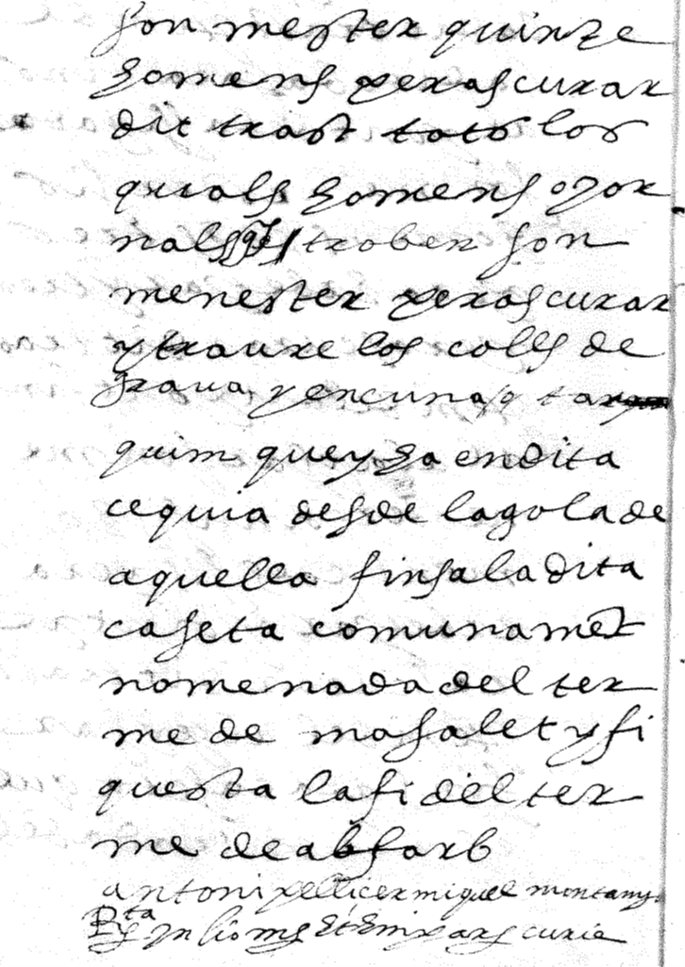 son mester quinze
homens perascurar
dit trast tots los
quals homens o jor
nals qe troben son
menester perascurar
y traure los colls de
graua, y encuna, o tar
quim que y ha en dita
cequia desde la gola de
aquella finsa la dita
caseta comunamet
nomenada del ter
me de masalet y fi
questa la fi del ter
me de abfarb
antoni pellicer miquel montany